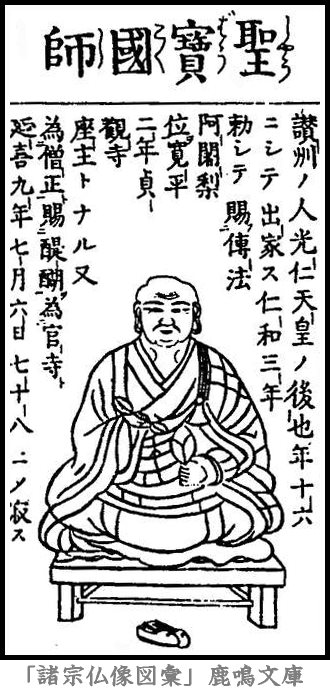 聖寶國師
讃州ノ人光仁天皇ノ後也年十六
ニシテ出家ス仁和三年
勅シテ賜傳法
阿闍梨
位寛平
二年貞
觀寺
座主トナル又
為僧正賜醍醐為官寺
延喜九年七月六日七十八ニノ寂ス
「諸宗仏像図彙」鹿鳴文庫